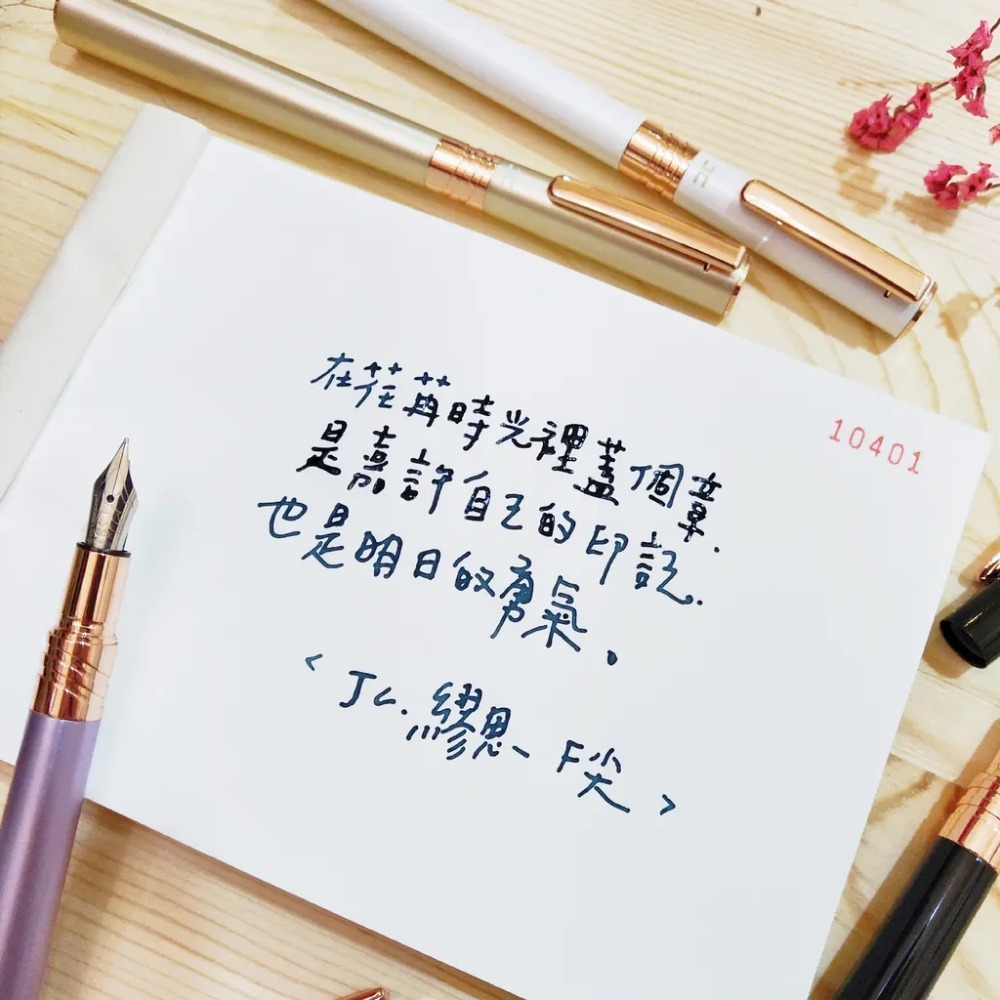 10401
在荏苒時光裡蓋個章.
是嘉許自己的印記.
也是明日的勇氣。
< JL.繆思- F尖 >